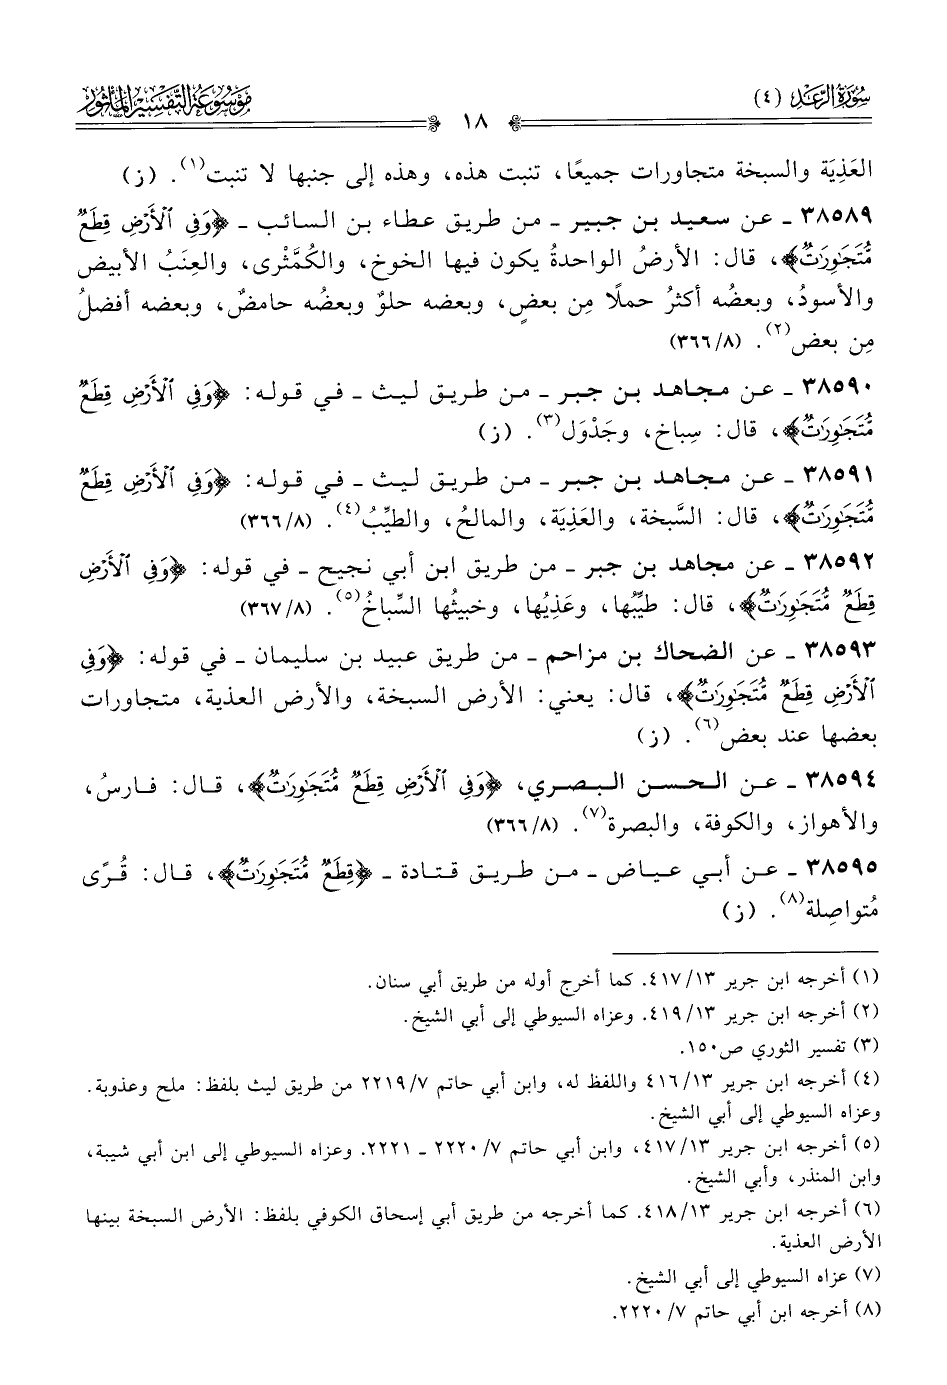 سُورَةُ الرَّعْدِ (٤)
١٨
مَوْسُوعَةُ التَّفْسِيرِ المَأْثُورِ
العَذِيَة والسبخة متجاورات جميعًا، تنبت هذه، وهذه إلى جنبها لا تنبت(١). (ز)
٣٨٥٨٩ ـ عن سعيد بن جبير ـ من طريق عطاء بن السائب ـ ﴿وَفِي ٱلْأَرْضِ قِطَعٌ
مُّتَجَٰوِرَٰتٌ﴾، قال: الأرضُ الواحدةُ يكون فيها الخوخ، والكُمَّثْرى، والعِنَبُ الأبيض
والأسودُ، وبعضُه أكثرُ حملًا مِن بعضٍ، وبعضه حلوٌ وبعضُه حامضٌ، وبعضه أفضلُ
مِن بعض(٢). (٣٦٦/٨)
٣٨٥٩٠ ـ عن مجاهد بن جبر ـ من طريق ليث ـ في قوله: ﴿وَفِي ٱلْأَرْضِ قِطَعٌ
مُّتَجَٰوِرَٰتٌ﴾، قال: سِباخ، وجَدْوَل(٣). (ز)
٣٨٥٩١ ـ عن مجاهد بن جبر ـ من طريق ليث ـ في قوله: ﴿وَفِي ٱلْأَرْضِ قِطَعٌ
مُّتَجَٰوِرَٰتٌ﴾، قال: السَّبخة، والعَذِيَة، والمالحُ، والطيِّبُ(٤). (٣٦٦/٨)
٣٨٥٩٢ ـ عن مجاهد بن جبر ـ من طريق ابن أبي نجيح ـ في قوله: ﴿وَفِي ٱلْأَرْضِ
قِطَعٌ مُّتَجَٰوِرَٰتٌ﴾، قال: طيِّبُها، وعَذِيُها، وخبيثُها السِّباخُ(٥). (٣٦٧/٨)
٣٨٥٩٣ ـ عن الضحاك بن مزاحم ـ من طريق عبيد بن سليمان ـ في قوله: ﴿وَفِي
ٱلْأَرْضِ قِطَعٌ مُّتَجَٰوِرَٰتٌ﴾، قال: يعني: الأرض السبخة، والأرض العذية، متجاورات
بعضها عند بعض(٦). (ز)
٣٨٥٩٤ ـ عن الحسن البصري، ﴿وَفِي ٱلْأَرْضِ قِطَعٌ مُّتَجَٰوِرَٰتٌ﴾، قال: فارسُ،
والأهواز، والكوفة، والبصرة(٧). (٣٦٦/٨)
٣٨٥٩٥ ـ عن أبي عياض ـ من طريق قتادة ـ ﴿قِطَعٌ مُّتَجَٰوِرَٰتٌ﴾، قال: قُرًى
مُتواصِلة(٨). (ز)
(١) أخرجه ابن جرير ٤١٧/١٣. كما أخرج أوله من طريق أبي سنان.
(٢) أخرجه ابن جرير ٤١٩/١٣. وعزاه السيوطي إلى أبي الشيخ.
(٣) تفسير الثوري ص١٥٠.
(٤) أخرجه ابن جرير ٤١٦/١٣ واللفظ له، وابن أبي حاتم ٢٢١٩/٧ من طريق ليث بلفظ: ملح وعذوبة.
وعزاه السيوطي إلى أبي الشيخ.
(٥) أخرجه ابن جرير ٤١٧/١٣، وابن أبي حاتم ٢٢٢٠/٧ ـ ٢٢٢١. وعزاه السيوطي إلى ابن أبي شيبة،
وابن المنذر، وأبي الشيخ.
(٦) أخرجه ابن جرير ٤١٨/١٣. كما أخرجه من طريق أبي إسحاق الكوفي بلفظ: الأرض السبخة بينها
الأرض العذية.
(٧) عزاه السيوطي إلى أبي الشيخ.
(٨) أخرجه ابن أبي حاتم ٢٢٢٠/٧.